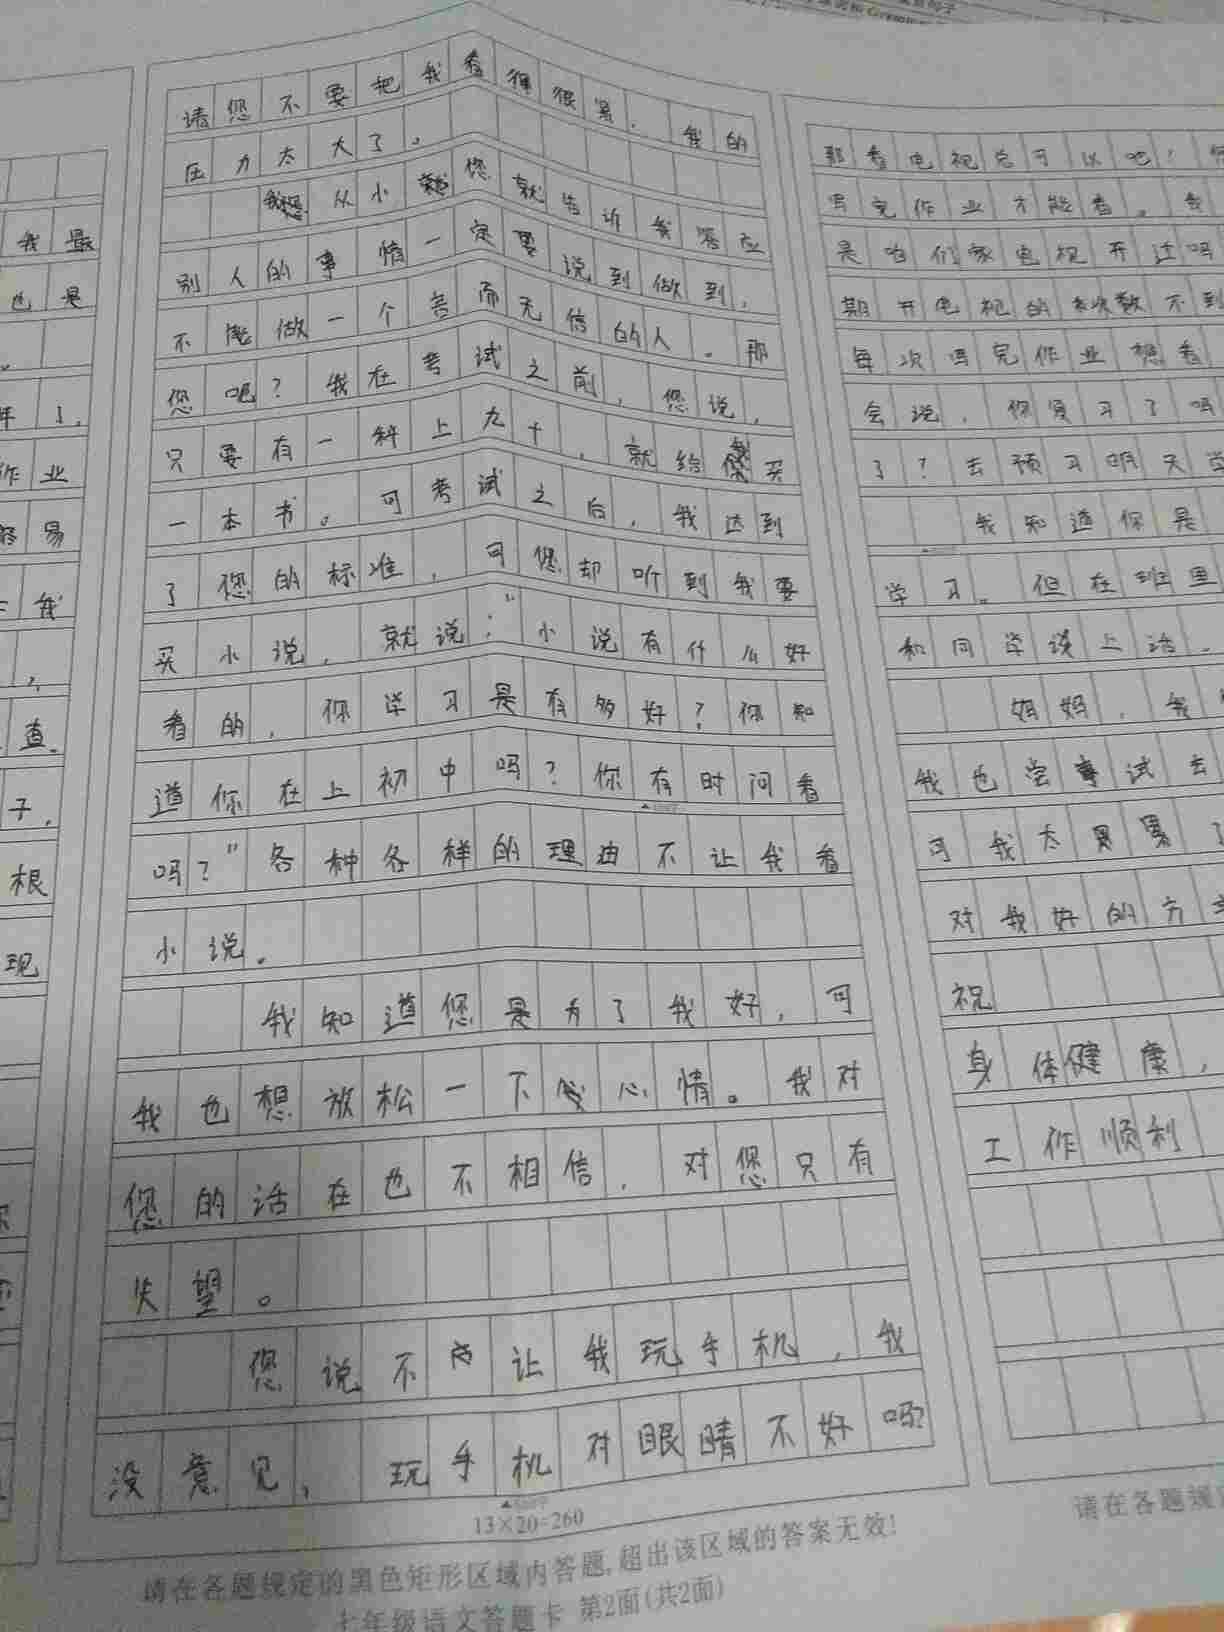 我最
也是
年了,
作业
容易
我
查.
子,
根
现
请您不要把我看得很累,我的
压力太大了。
从小您就告诉我答应
别人的事情一定要说到做到,
不能做一个言而无信的人。那
您吧?我在考试之前,您说,
只要有一科上九十,就给我买
一本书。可考试之后,我达到
了您的标准,可您却听到我要
买小说,就说:"小说有什么好
看的,你学习是有多好?你知
道你在上初中吗?你有时间看
吗?"各种各样的理由不让我看
小说。
我知道您是为了我好,可
我也想放松一下心情。我对
您的话在也不相信,对您只有
失望。
您说不让我玩手机,我
没意见,玩手机对眼睛不好吗?
500字
13×20=260
请在各题规定的黑色矩形区域内答题,超出该区域的答案无效!
七年级语文答题卡 第2面(共2面)
那看电视总可以吧?
写完作业才能看。我
是咱们家电视开过吗
期开电视的次数不到
每次写完作业想看
会说,你复习了吗
了?去预习明天学
我知道你是
学习。但在班里
和同学谈上话。
妈妈,我
我也尝试去
可我太累了
对我好的方
祝
身体健康,
工作顺利
请在各题规